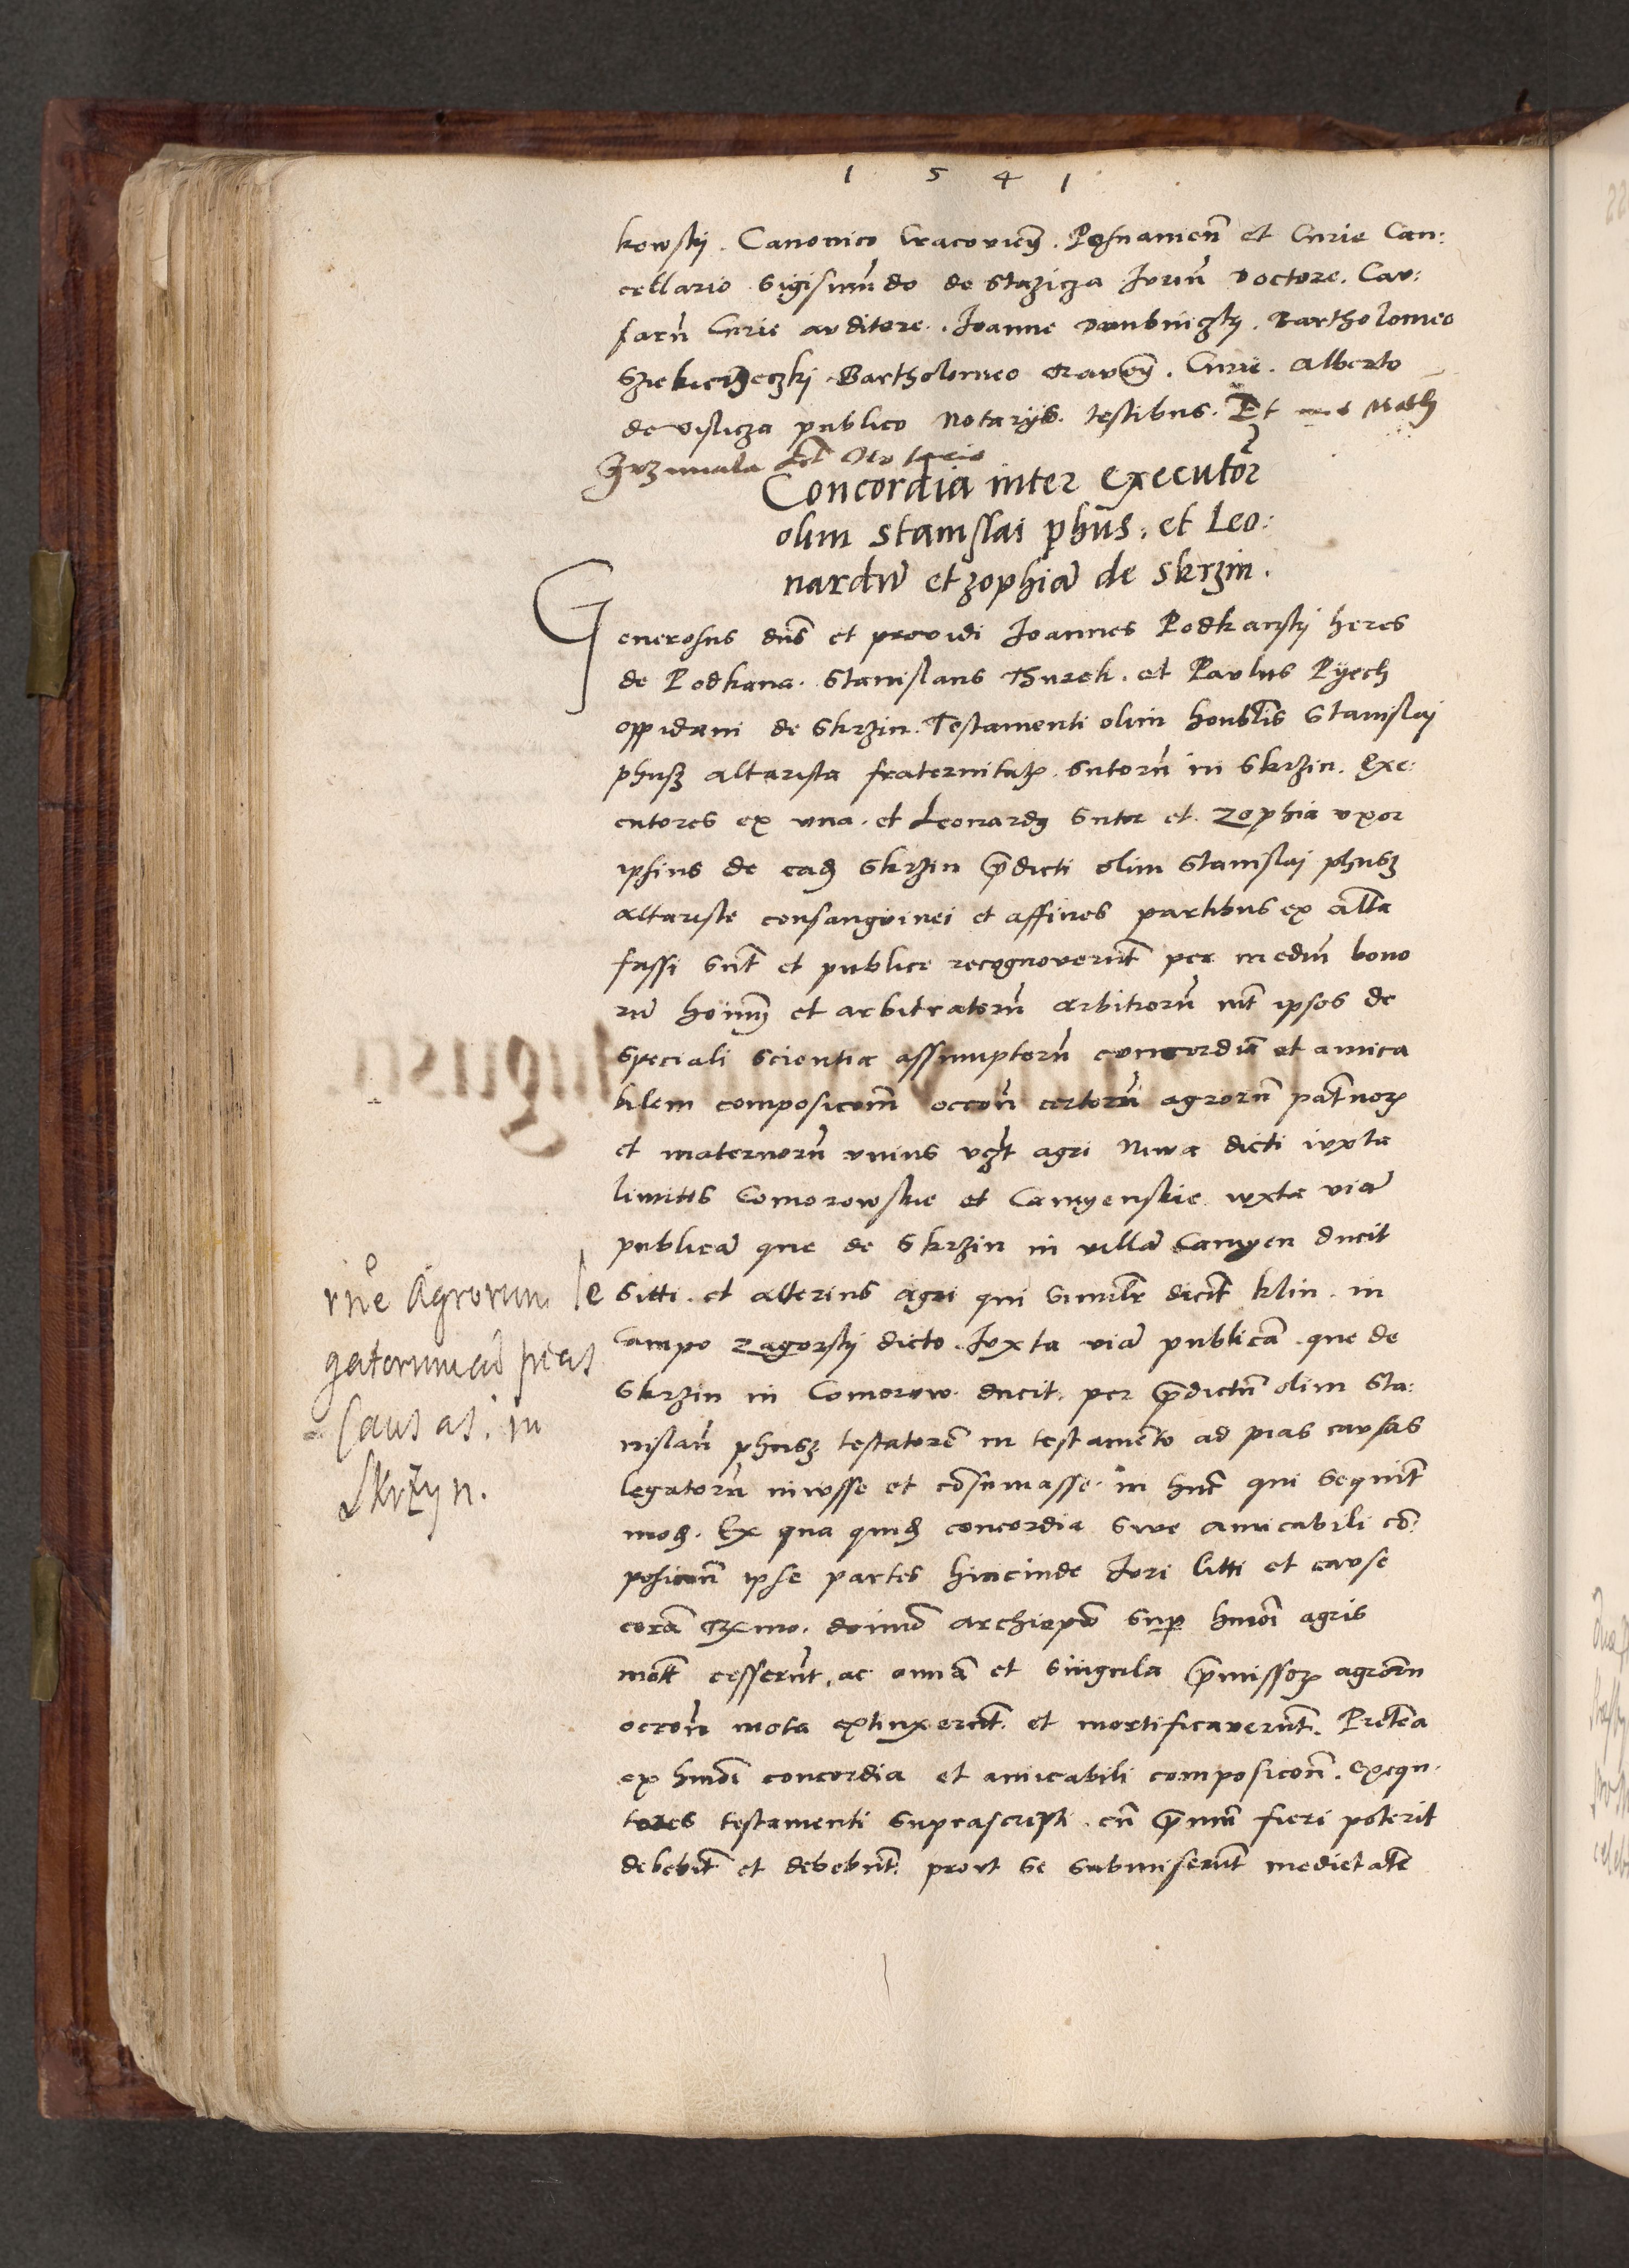 1 5 4 1
kowskj. Canonico Cracovieñ. Posnanieñ et Curie Can:
cellario Sigismūdo de Stazicza Iuriū doctore. Cau:
sarū Curie auditore. Ioanne Dambniczkj. Bartholomeo
Bartholomeo Curie. Alberto
de vislicza publico Notarijs. testibus. Et
Concordia inter executor̃
olim stanislai phūs. et Leo:
nardū et zophiā de skrzin.
Generosus dñs et providi Ioannes Podkanskj heres
de Podkana. Stanislaus Thurek. et Paulus Pyech
oppidani de Skrzin. Testamenti olim honūblis Stanislaj
phusz altarista fraternitatꝫ sutorū in Skrzin. Exe:
cutores ex una. et Leonardꝰ Sutor et zophia uxor
ipsius de eadꝫ Skrzin p̄dicti olim Stanislaj phusz
altariste consanguinei et affines partibus ex alt̃a
fassi sūt et publice recognoverūt per mediū bono
rū hoim̄ et arbitratorū arbitrorū int̃ ipsos de
speciali scientia assumptorū concordiā et amica
bilem composicoñm occoñe certorū agrorū pat̃norꝫ
et maternorū unius vꝫt agri Niwa dicti iuxta
limites Comorowskie et Camyenskie iuxta viā
publicā que de Skrzin in villā Camyen ducit
Sitti. et alterius agri qui similr̄ dicit̃ klin. in
campo zagorskj dicto. Iuxta viā publicā. que de
Skrzin in Comorow. ducit. per p̄dictū olim Sta:
nislaū phusz testatorē in testamento ad pias causas
legatorū iniusse et cōsumasse. in hūc qui sequit̃
modꝫ. Ex qua quidꝫ concordia sive amicabili cō:
posicoñe ipse partes hincinde Iuri litti et cause
corā Rx̃mo. domino archiepō sup̱ hmōi agris
mot̃ cesserūt. ac omnia et singula p̄missorꝫ agrorū
occoñe mota extinxerūt. et mortificaverūt. Pretēa
ex hmōi concordia et amicabili composicoñe. exequ
tores testamenti suprascripti. cū p̄mū fieri poterit
debebit̃ et debebūt. prout se submiserūt medietatē
r̄ne Agrorum le
gatorum ad pias
Causas. in
Skrzyn.